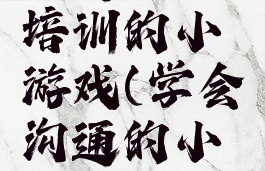 培训的小
游戏(学会
沟通的小